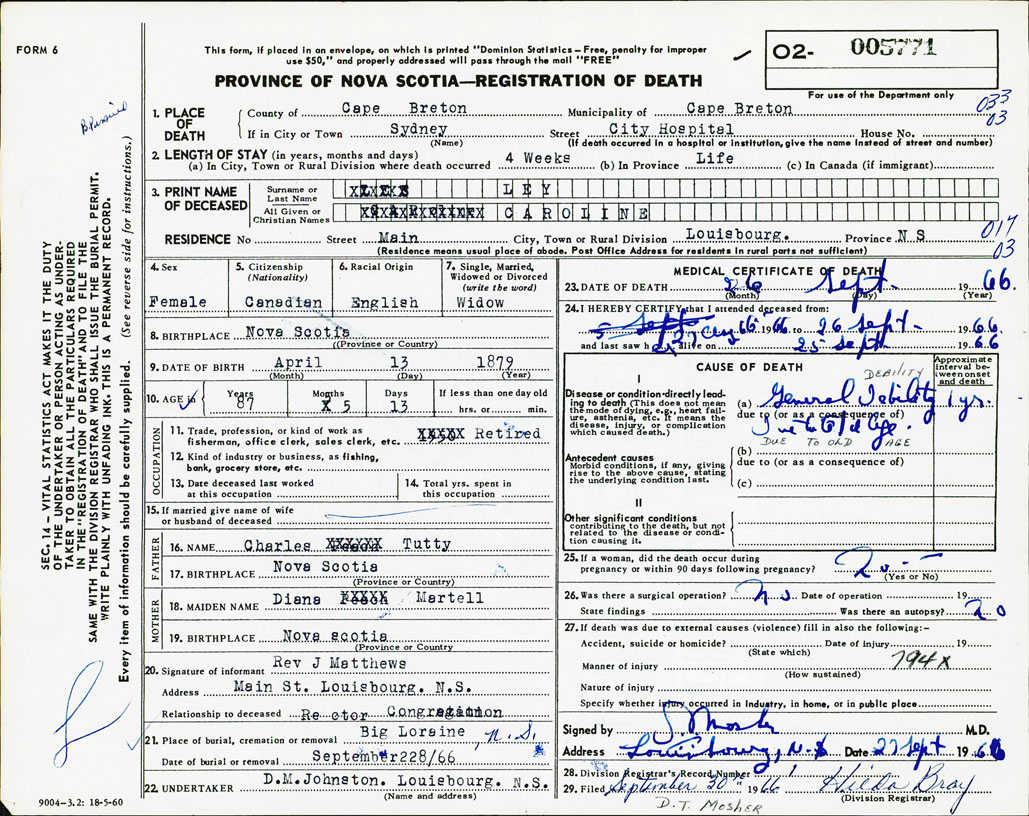 FORM 6
This form, if placed in an envelope, on which is printed "Dominion Statistics – Free, penalty for improper
use $50," and properly addressed will pass through the mail "FREE"
PROVINCE OF NOVA SCOTIA—REGISTRATION OF DEATH
02- 005771
For use of the Department only
033
03
1. PLACE OF DEATH
County of Cape Breton Municipality of Cape Breton
If in City or Town Sydney Street City Hospital House No.
(Name) (If death occurred in a hospital or institution, give the name instead of street and number)
2. LENGTH OF STAY (in years, months and days)
(a) In City, Town or Rural Division where death occurred 4 Weeks (b) In Province Life (c) In Canada (if immigrant)
3. PRINT NAME OF DECEASED
Surname or Last Name LEY
All Given or Christian Names CAROLINE
017
03
RESIDENCE No Street Main City, Town or Rural Division Louisbourg. Province N S
(Residence means usual place of abode. Post Office Address for residents in rural parts not sufficient)
4. Sex
Female
5. Citizenship (Nationality)
Canadian
6. Racial Origin
English
7. Single, Married, Widowed or Divorced (write the word)
Widow
8. BIRTHPLACE Nova Scotia
(Province or Country)
9. DATE OF BIRTH April 13 1879
(Month) (Day) (Year)
10. AGE in Years 87 Months X 5 Days 13 If less than one day old
hrs. or min.
OCCUPATION
11. Trade, profession, or kind of work as
fisherman, office clerk, sales clerk, etc. Retired
12. Kind of industry or business, as fishing,
bank, grocery store, etc.
13. Date deceased last worked
at this occupation
14. Total yrs. spent in
this occupation
15. If married give name of wife
or husband of deceased
FATHER
16. NAME Charles Tutty
17. BIRTHPLACE Nova Scotia
(Province or Country)
MOTHER
18. MAIDEN NAME Diana Martell
19. BIRTHPLACE Nova scotia
(Province or Country)
20. Signature of informant Rev J Matthews
Address Main St. Louisbourg. N.S.
Relationship to deceased Rector Congregation
21. Place of burial, cremation or removal Big Loraine, N.S.
Date of burial or removal September228/66
22. UNDERTAKER D.M.Johnston. Louisbourg. N.S.
(Name and address)
MEDICAL CERTIFICATE OF DEATH
23. DATE OF DEATH 26 Sept 1966.
(Month) (Day) (Year)
24. I HEREBY CERTIFY that I attended deceased from:
27 Aug 66 1966 to 26 Sept 1966
and last saw h alive on 25 Sept 1966
CAUSE OF DEATH
Approximate interval between onset and death
I
Disease or condition directly leading
to death (This does not mean
the mode of dying, e.g., heart failure,
asthenia, etc. It means the
disease, injury, or complication
which caused death.)
DEBILITY
(a) General Debility 1 yr.
due to (or as a consequence of)
Due to Old Age.
DUE TO OLD AGE
(b)
due to (or as a consequence of)
(c)
Antecedent causes
Morbid conditions, if any, giving
rise to the above cause, stating
the underlying condition last.
II
Other significant conditions
contributing to the death, but not
related to the disease or condition
causing it.
25. If a woman, did the death occur during
pregnancy or within 90 days following pregnancy? No
(Yes or No)
26. Was there a surgical operation? No Date of operation 19
State findings Was there an autopsy? No
27. If death was due to external causes (violence) fill in also the following:–
Accident, suicide or homicide? Date of injury 19
(State which)
794X
Manner of injury
(How sustained)
Nature of injury
Specify whether injury occurred in industry, in home, or in public place
Signed by Mosher M.D.
Address Louisbourg, N.S Date 27 Sept 1966
28. Division Registrar's Record Number
29. Filed September 30th 1966 Hilda Bray
(Division Registrar)
D.T. MOSHER
9004–3.2: 18-5-60
SEC. 14 – VITAL STATISTICS ACT MAKES IT THE DUTY
OF THE UNDERTAKER OR PERSON ACTING AS UNDERTAKER
TO OBTAIN ALL THE PARTICULARS REQUIRED
IN THE "REGISTRATION OF DEATH" AND TO FILE THE
SAME WITH THE DIVISION REGISTRAR WHO SHALL ISSUE THE BURIAL PERMIT.
WRITE PLAINLY WITH UNFADING INK. THIS IS A PERMANENT RECORD.
Every item of information should be carefully supplied. (See reverse side for instructions.)